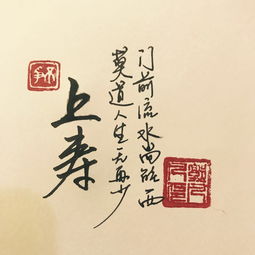 门前流水尚能西
莫道人生无再少
上寿
不争